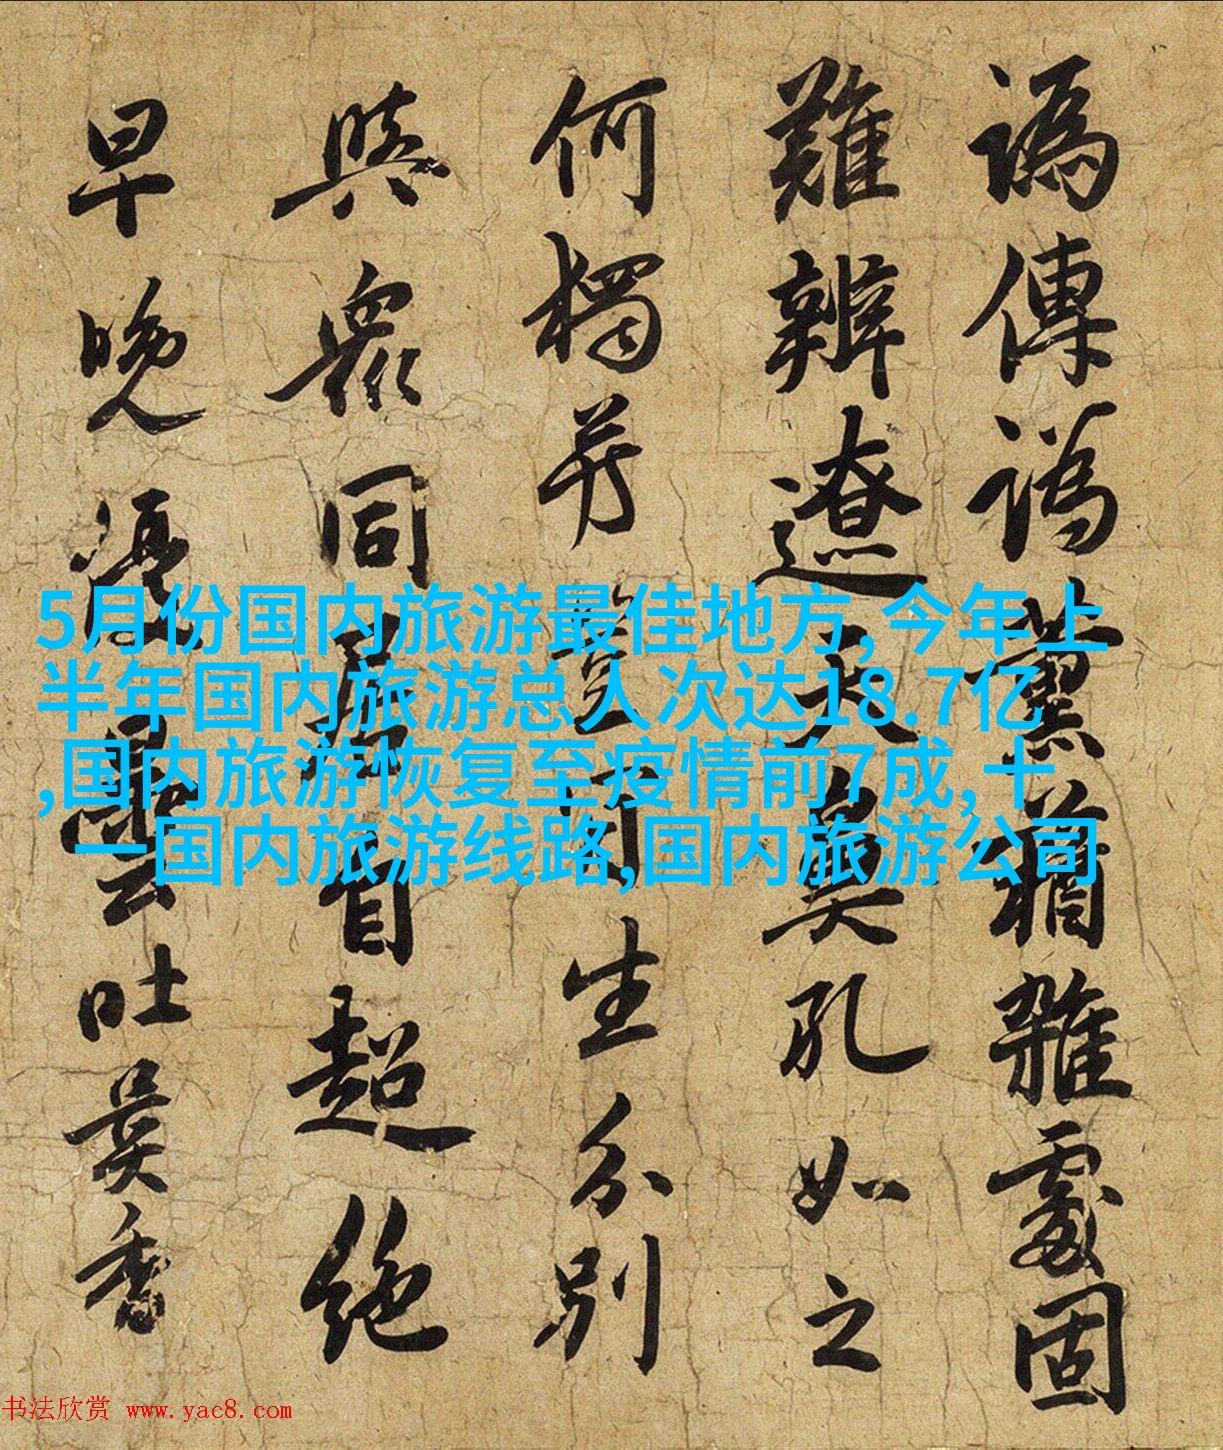 譌傳譌薰蕕雜處固
難辨遼天孔如之
何獨於生分別
與眾同居超絕
早晚吐異香
5月份国内旅游最佳地方,今年上
半年国内旅游总人次达18.7亿
,国内旅游恢复至疫情前7成,十
一国内旅游线路,国内旅游公司
书法欣赏 www.yac8.com